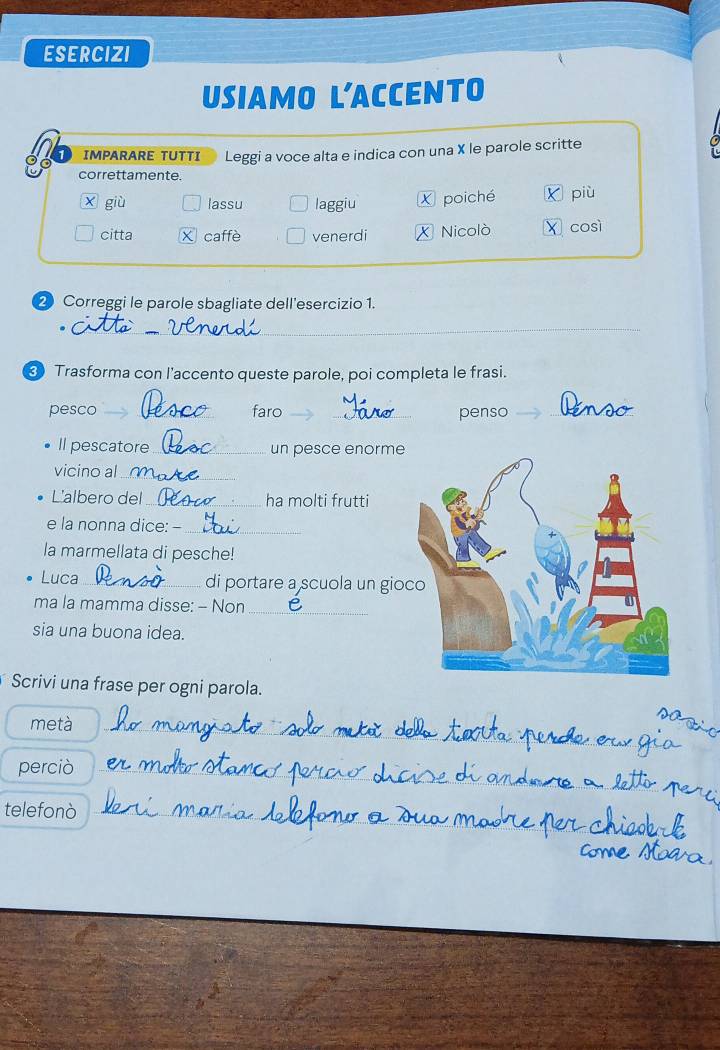 ESERCIZI
USIAMO L'ACCENTO
1 IMPARARE TUTTI Leggi a voce alta e indica con una X le parole scritte
correttamente.
X giù lassu laggiu X poiché X più
citta X caffè venerdi X Nicolò X così
2 Correggi le parole sbagliate dell'esercizio 1.
• città - venerdí
3 Trasforma con l'accento queste parole, poi completa le frasi.
pesco Pésco faro Fáro penso Pénso
• Il pescatore Pesc un pesce enorme
vicino al mare
• L'albero del Pésco ha molti frutti
e la nonna dice: – Fai
la marmellata di pesche!
• Luca Pensò di portare a scuola un gioco
ma la mamma disse: – Non é
sia una buona idea.
Scrivi una frase per ogni parola.
metà ho mangiato solo metà della torta perde ero gia sazio
perciò er molto stanco perciò dicise di andare a letto
telefonò Ieri maria telefono a sua madre per chiederle
come stava.